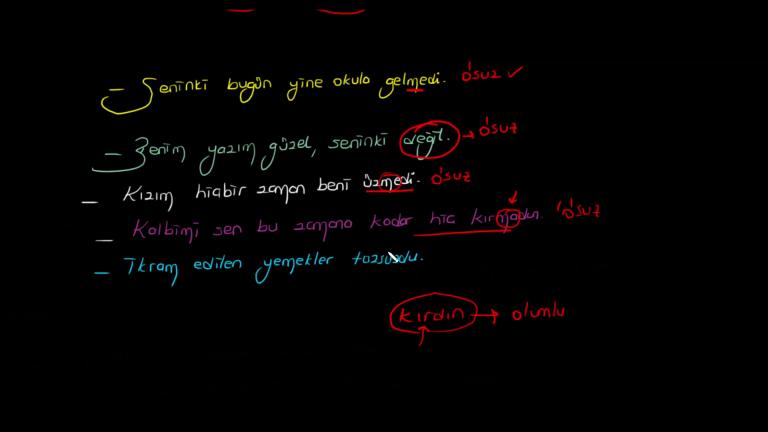 - Seninki bugün yine okula gelmedi. ö'suz ✓
- Benim yazım güzel, seninki değil. → ö'suz
- Kızım hiçbir zaman beni üzmedi. ö'suz
- Kalbimi sen bu zamana kadar hiç kırmadın. ö'suz
- İkram edilen yemekler tuzsuzdu.
kırdın → olumlu